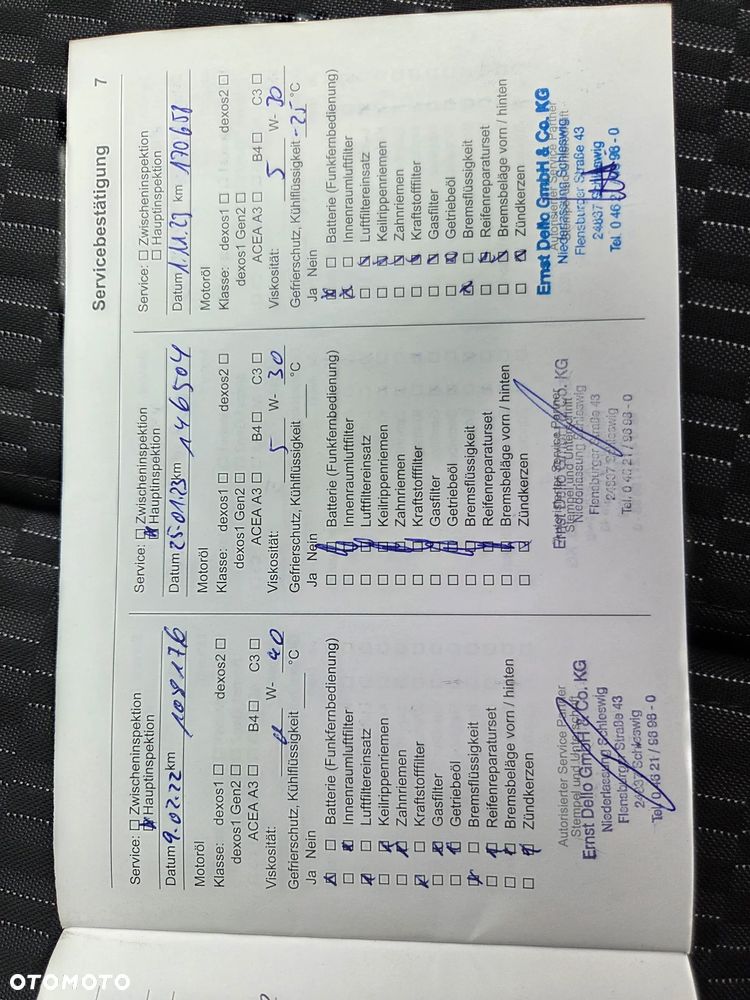 Servicebestätigung 7
Service: ☐ Zwischeninspektion
☒ Hauptinspektion
Datum 9.02.22 km 108176
Motoröl
Klasse: dexos1 ☐ dexos2 ☐
dexos1 Gen2 ☐
ACEA A3 ☐ B4 ☐ C3 ☐
Viskosität: W- 40
Gefrierschutz, Kühlflüssigkeit °C
Ja Nein
Batterie (Funkfernbedienung)
Innenraumluftfilter
Luftfiltereinsatz
Keilrippenriemen
Zahnriemen
Kraftstofffilter
Gasfilter
Getriebeöl
Bremsflüssigkeit
Reifenreparaturset
Bremsbeläge vorn / hinten
Zündkerzen
Autorisierter Service Partner
Stempel und Unterschrift
Ernst Dello GmbH & Co. KG
Niederlassung Schleswig
Flensburger Straße 43
24837 Schleswig
Tel. 0 46 21 / 98 98 - 0
Service: ☐ Zwischeninspektion
☒ Hauptinspektion
Datum 25.01.23 km 146504
Motoröl
Klasse: dexos1 ☐ dexos2 ☐
dexos1 Gen2 ☐
ACEA A3 ☐ B4 ☐ C3 ☐
Viskosität: 5 W- 30
Gefrierschutz, Kühlflüssigkeit °C
Ja Nein
Batterie (Funkfernbedienung)
Innenraumluftfilter
Luftfiltereinsatz
Keilrippenriemen
Zahnriemen
Kraftstofffilter
Gasfilter
Getriebeöl
Bremsflüssigkeit
Reifenreparaturset
Bremsbeläge vorn / hinten
Zündkerzen
Autorisierter Service Partner
Stempel und Unterschrift
Ernst Dello GmbH & Co. KG
Niederlassung Schleswig
Flensburger Straße 43
24837 Schleswig
Tel. 0 46 21 / 98 98 - 0
Service: ☐ Zwischeninspektion
☐ Hauptinspektion
Datum 1.11.23 km 170658
Motoröl
Klasse: dexos1 ☐ dexos2 ☐
dexos1 Gen2 ☐
ACEA A3 ☐ B4 ☐ C3 ☐
Viskosität: 5 W- 30
Gefrierschutz, Kühlflüssigkeit -25 °C
Ja Nein
Batterie (Funkfernbedienung)
Innenraumluftfilter
Luftfiltereinsatz
Keilrippenriemen
Zahnriemen
Kraftstofffilter
Gasfilter
Getriebeöl
Bremsflüssigkeit
Reifenreparaturset
Bremsbeläge vorn / hinten
Zündkerzen
Autorisierter Service Partner
Stempel und Unterschrift
Ernst Dello GmbH & Co. KG
Niederlassung Schleswig
Flensburger Straße 43
24837 Schleswig
Tel. 0 46 98 - 0
OTOMOTO